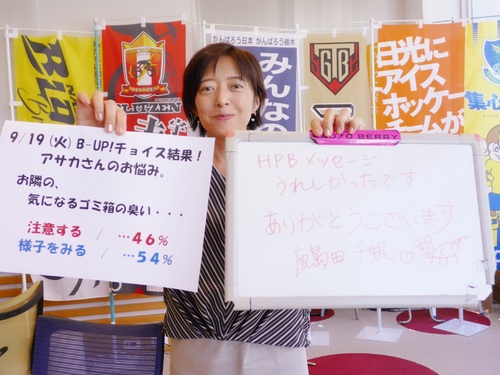 がんばろう日本 がんばろう栃木
みんなの
GTB
日光に
アイス
ホッケー
チームが
9/19(火)B-UP!チョイス結果!
アサカさんのお悩み。
お隣の、
気になるゴミ箱の臭い・・・
注意する / …46%
様子をみる / …54%
BERRY
HPBメッセージ
うれしかったです
ありがとうございます